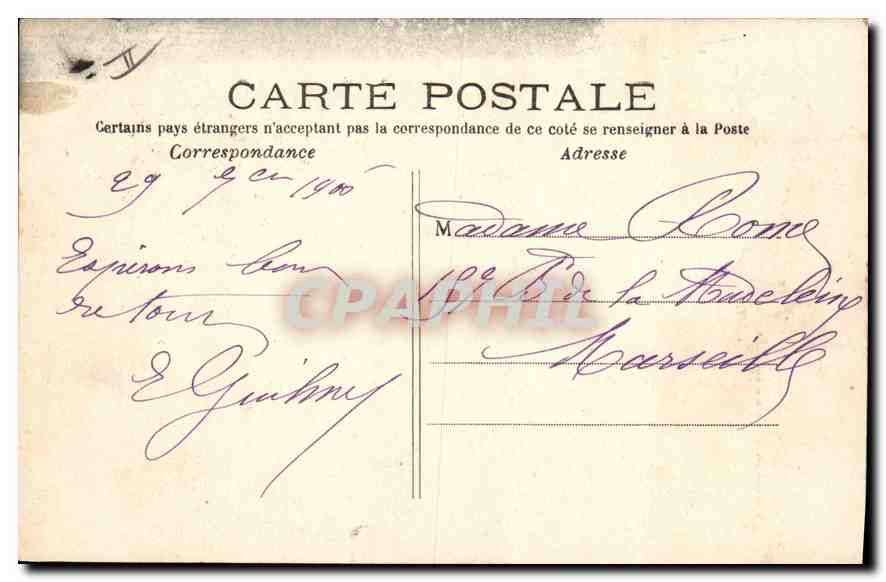 CARTE POSTALE
Certains pays étrangers n'acceptant pas la correspondance de ce coté se renseigner à la Poste
Correspondance
Adresse
29
Espérons bon
retour
E
Madame Rome
Bd de la Madeleine
Marseille
CPAPHIL